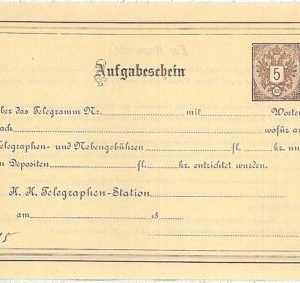 Aufgabeschein
5
ber das Telegramm Nr. mit Worten
ach wofür an
elegraphen- und Nebengebühren fl. kr. und
n Depositen fl. kr. entrichtet wurden.
K. K. Telegraphen-Station
am 18